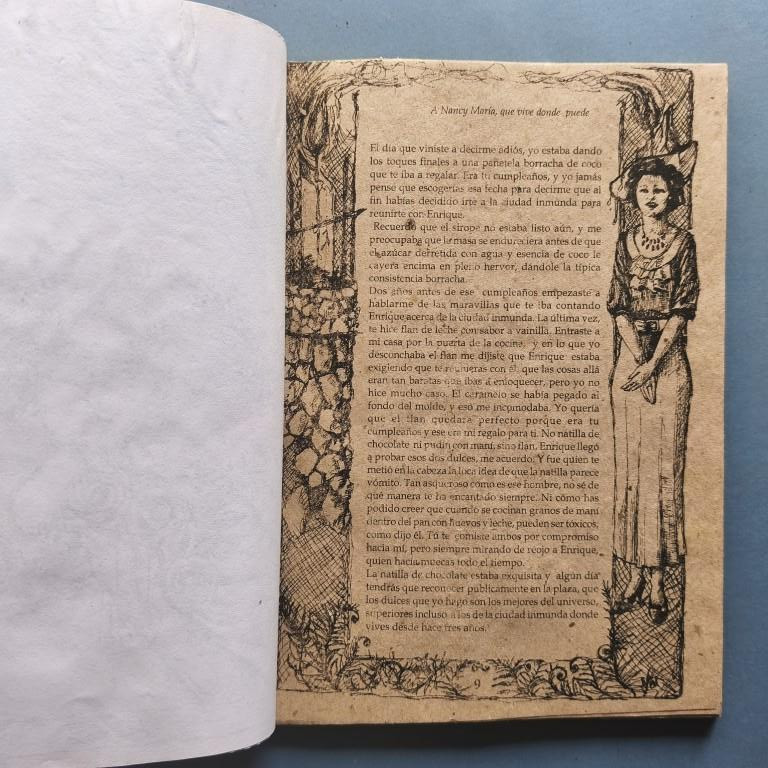 A Nancy María, que vive donde puede
El día que viniste a decirme adiós, yo estaba dando
los toques finales a una pañetela borracha de coco
que te iba a regalar. Era tu cumpleaños, y yo jamás
pensé que escogerías esa fecha para decirme que al
fin habías decidido irte a la ciudad inmunda para
reunirte con Enrique.
Recuerdo que el sirope no estaba listo aún, y me
preocupaba que la masa se endureciera antes de que
el azúcar derretida con agua y esencia de coco le
cayera encima en pleno hervor, dándole la típica
consistencia borracha.
Dos años antes de ese cumpleaños empezaste a
hablarme de las maravillas que te iba contando
Enrique acerca de la ciudad inmunda. La última vez,
te hice flan de leche con sabor a vainilla. Entraste a
mi casa por la puerta de la cocina, y en lo que yo
desconchaba el flan me dijiste que Enrique estaba
exigiendo que te reunieras con él, que las cosas allá
eran tan baratas que ibas a enloquecer, pero yo no
hice mucho caso. El caramelo se había pegado al
fondo del molde, y eso me incomodaba. Yo quería
que el flan quedara perfecto porque era tu
cumpleaños y ese era mi regalo para ti. No natilla de
chocolate ni pudín con maní, sino flan. Enrique llegó
a probar esos dos dulces, me acuerdo. Y fue quien te
metió en la cabeza la loca idea de que la natilla parece
vómito. Tan asqueroso como es ese hombre, no sé de
qué manera te ha encantado siempre. Ni cómo has
podido creer que cuando se cocinan granos de maní
dentro del pan con huevos y leche, pueden ser tóxicos,
como dijo él. Tú te comiste ambos por compromiso
hacia mí, pero siempre mirando de reojo a Enrique,
quien hacía muecas todo el tiempo.
La natilla de chocolate estaba exquisita y algún día
tendrás que reconocer públicamente en la plaza, que
los dulces que yo hago son los mejores del universo,
superiores incluso a los de la ciudad inmunda donde
vives desde hace tres años.
9